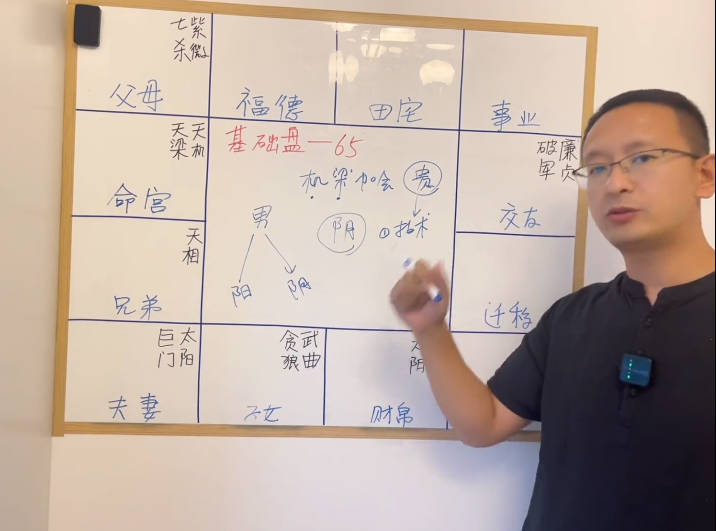 紫微
七杀
父母
福德
田宅
事业
基础盘—65
天机
天梁
命宫
机梁加会 贵
廉贞
破军
交友
男
阴 ①技术
阳 阴
天相
兄弟
迁移
太阳
巨门
夫妻
武曲
贪狼
子女
财帛